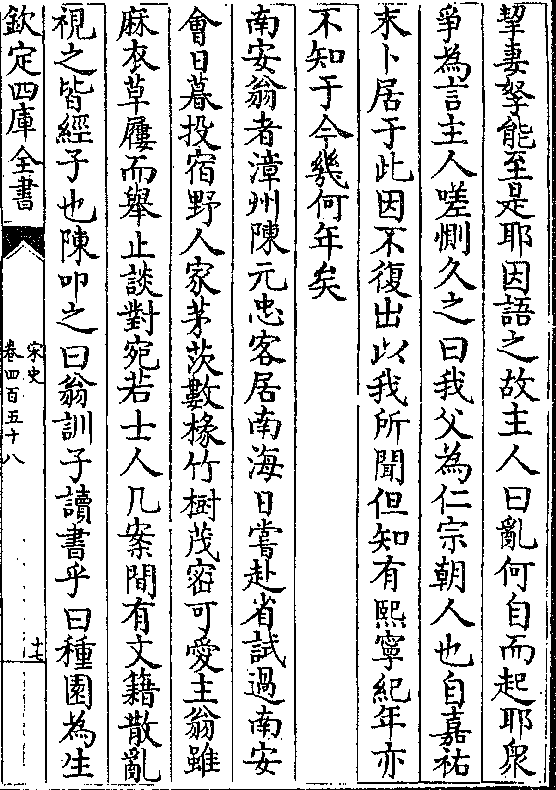 挈妻孥能至是耶因語之故主人曰亂何自而起耶衆
爭為言主人嗟惻久之曰我父為仁宗朝人也自嘉祐
末卜居于此因不復出以我所聞但知有熙寧紀年亦
不知于今幾何年矣
南安翁者漳州陳元忠客居南海日嘗赴省試過南安
會日暮投宿野人家茅茨數椽竹樹茂密可愛主翁雖
麻衣草屨而舉止談對宛若士人几案間有文籍散亂
視之皆經子也陳叩之曰翁訓子讀書乎曰種園為生
欽定四庫全書
宋史
卷四百五十八
十七